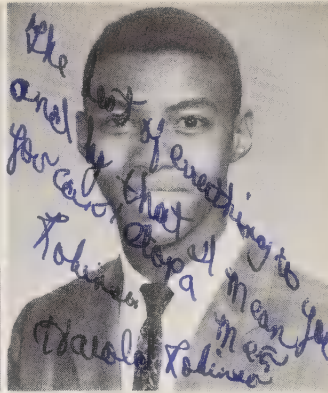 The best of everything to you
and by that I mean you
you can't stop a
Robinson
Harold Robinson